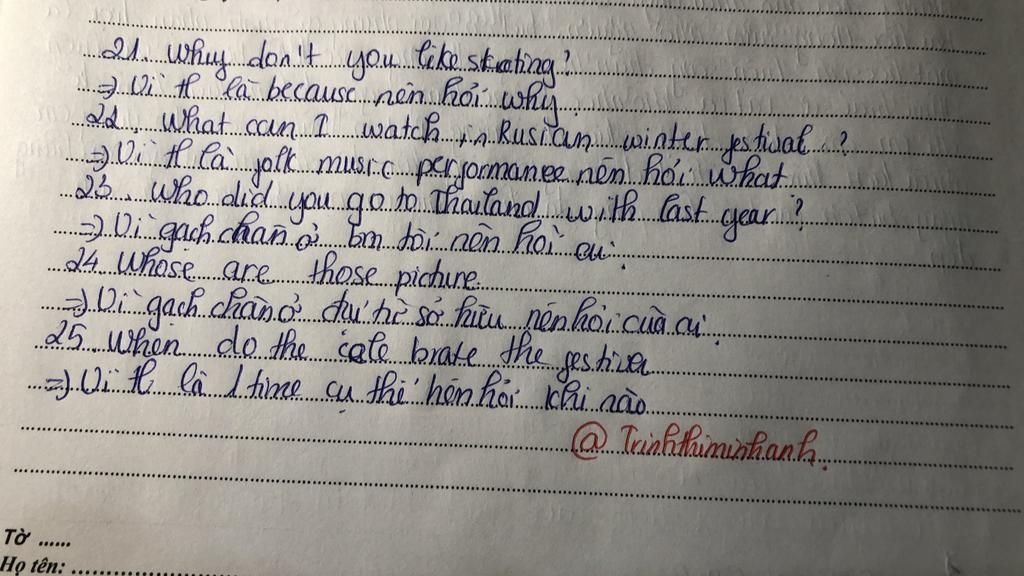 21. Whuy don't you like skating?
=) Vì tl là because nên hỏi why
22. What can I watch in Rusian winter festival ?
=) Vì tl là folk music performanee nên hỏi what
23. Who did you go to Thailand with last year ?
=) Vì gạch chân ở bm tôi nên hỏi ai.
24 Whose are those picture.
=) Vì gạch chân ở đại từ sở hữu nên hỏi của ai.
25. When do the cele brate the festiver
=) Vì tl là 1 time cụ thể nên hỏi khi nào
@ Trinhthiminhanh.
Tờ ......
Họ tên: ..................